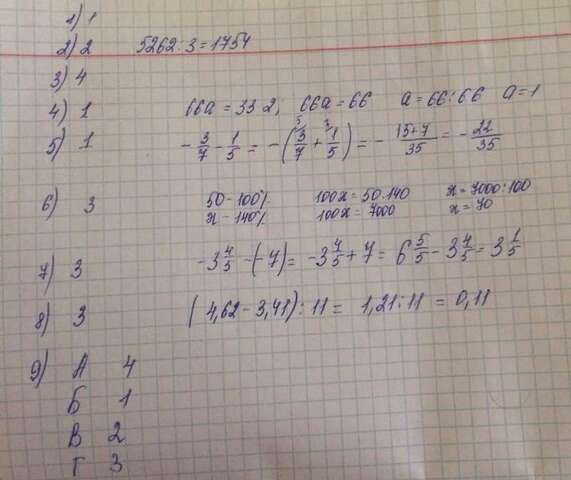 1) 1
2) 2 5262 : 3 = 1754
3) 4
4) 1 66a = 33·2; 66a = 66 a = 66 : 66 a = 1
5) 1 - 3/7 - 1/5 = -(3/7 + 1/5) = - 15+7/35 = - 22/35
6) 3 50 - 100% 100x = 50·140 x = 7000 : 100
x - 140% 100x = 7000 x = 70
7) 3 -3 4/5 - (-7) = -3 4/5 + 7 = 6 5/5 - 3 4/5 = 3 1/5
8) 3 (4,62 - 3,41) : 11 = 1,21 : 11 = 0,11
9) А 4
Б 1
В 2
Г 3